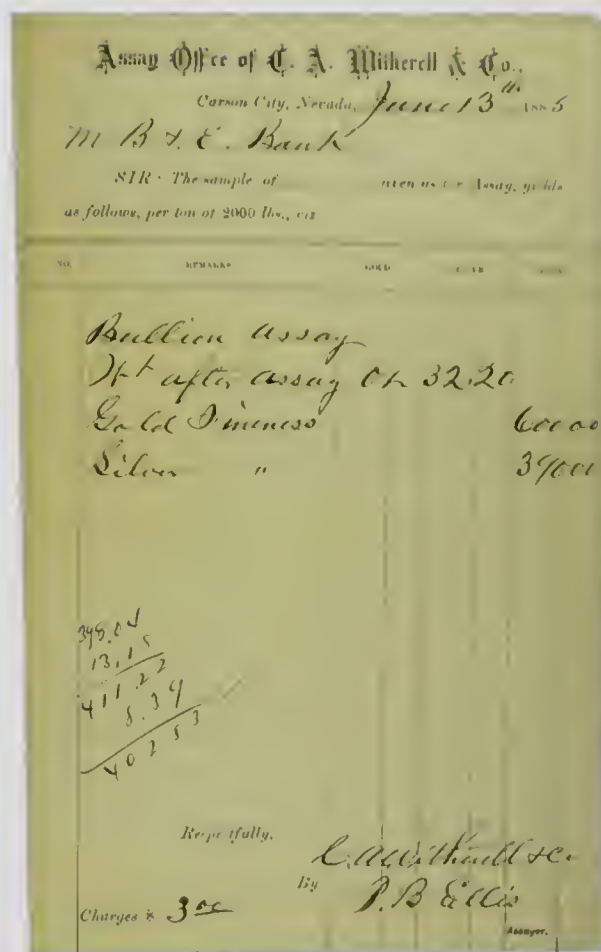 Assay Office of C. A. Witherell & Co.,
Carson City, Nevada, June 13th 1885
M B & E. Bank
SIR: The sample of given us for Assay, yields
as follows, per ton of 2000 lbs., viz
NO. REMARKS GOLD
Bullion Assay
Wt after Assay Oz 32.20
Gold Fineness 600 00
Silver "
398.04
13.18
411.22
8.39
402 83
Respectfully,
C. A. Witherell & Co
By P. B Ellis
Charges $ 3 00
Assayer.